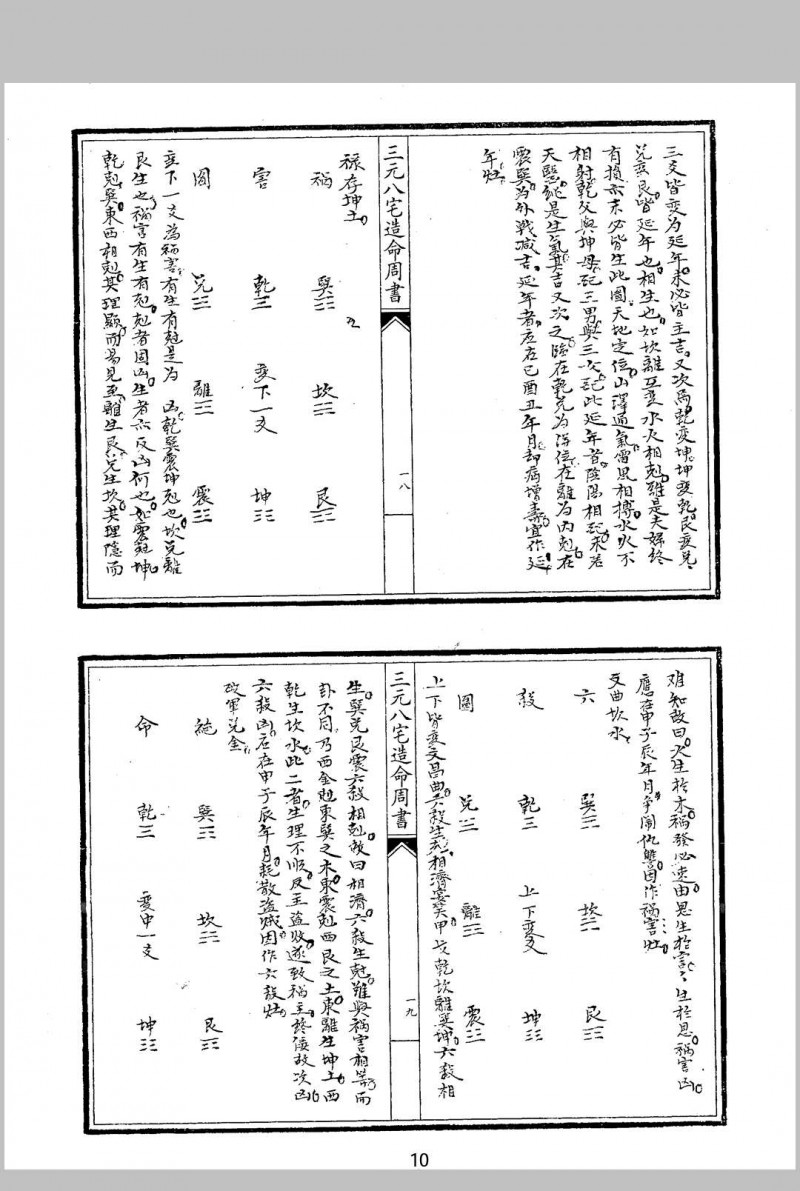 三爻皆变为延年未必皆主吉又次焉乾变坤坤变乾艮变兑
兑变艮皆延年也相生也如坎離互变水火相剋雖是夫婦終
有損亦未必皆生此圖天地定位山澤通氣雷風相搏水火不
相射乾父與坤母配三男與三女配此延年者陰陽相配未若
天醫純是生氣其吉又次之臨在乾兑为得位在離为内剋在
震巽为外戰减吉延年者应在巳酉丑年月却病增壽宜作延
年灶
三元八宅造命周書
一八
禄存坤土
禍 巽☴ 坎☵ 艮☶
害 乾☰ 变下一爻 坤☷
圖 兑☱ 離☲ 震☳
变下一爻为禍害有生有剋是为凶乾巽震坤剋也坎兑離
艮生也禍害有生有剋剋者固凶生者亦反凶何也如震剋坤
乾剋巽東西相剋其理顯而易見至離生艮兑生坎其理隐而
难知故曰火生於木禍發必速由恩生於害害生於恩禍害凶
應在申子辰年月争鬧仇讐因作禍害灶
文曲坎水
六 巽☴ 坎☵ 艮☶
殺 乾☰ 上下变爻 坤☷
圖 兑☱ 離☲ 震☳
上下皆变文昌曲六殺生剋相濟 乾坎離巽坤六殺相
三元八宅造命周書
一九
生巽兑艮震六殺相剋故曰相濟六殺生剋雖與禍害相等而
卦不同乃西金剋東巽之木東震剋西艮之土東離生坤土西
乾生坎水此二者生理不順反主盗收遂致禍主终凌故次凶
六殺凶应在申子辰年月耗散盗贼因作六殺灶
破軍兑金
絶 巽☴ 坎☵ 艮☶
命 乾☰ 变中一爻 坤☷
10